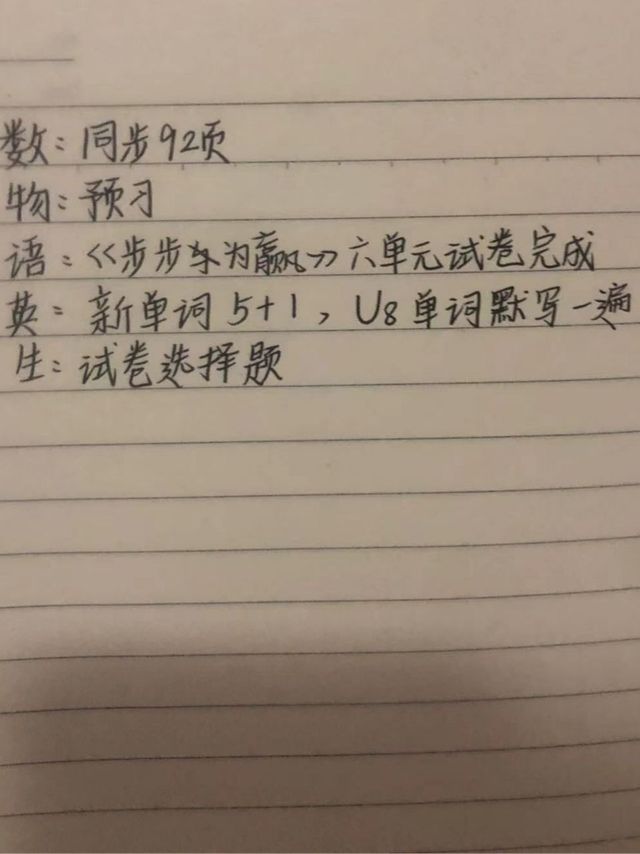 数：同步92页
物：预习
语：《步步为赢》六单元试卷完成
英：新单词5+1，U8单词默写一遍
生：试卷选择题